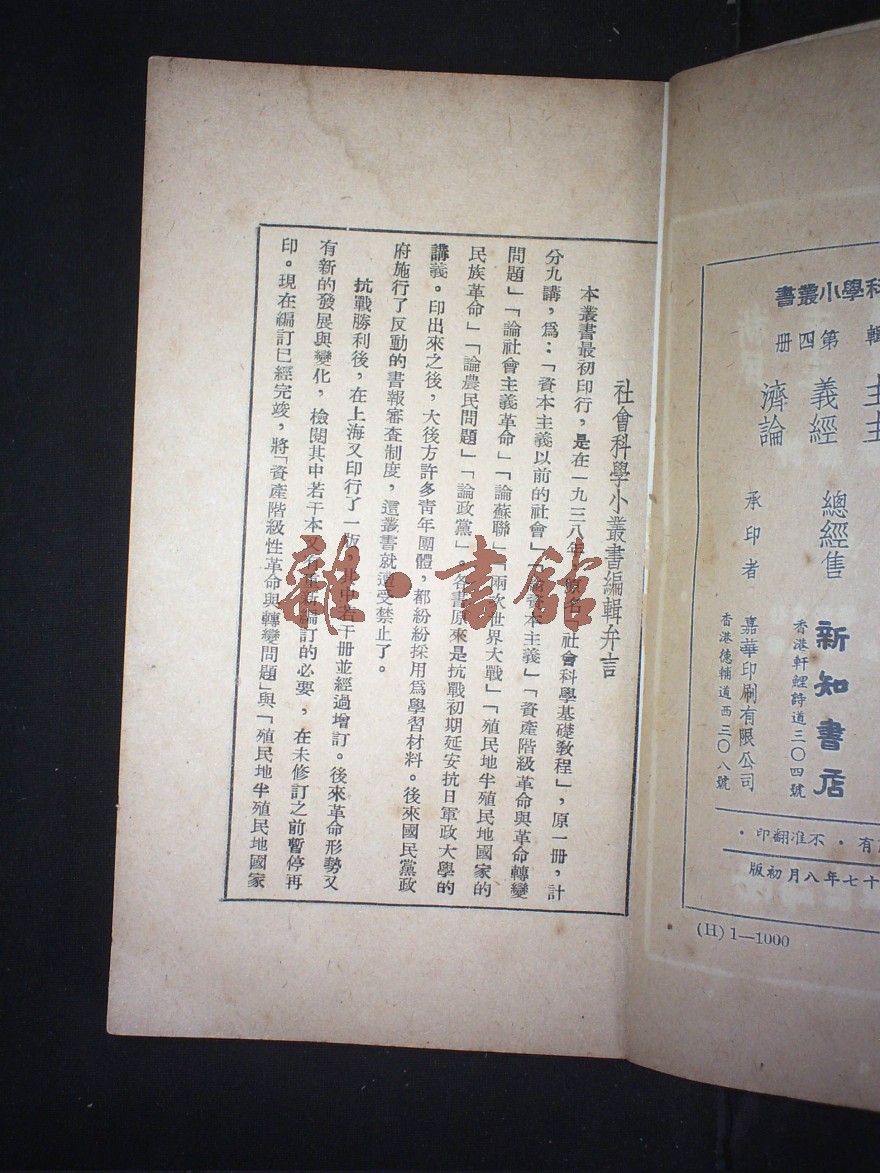 社會科學小叢書編輯弁言
本叢書最初印行，是在一九三八年，原名「社會科學基礎教程」，原一冊，計
分九講，爲：「資本主義以前的社會」「論資本主義」「資產階級革命與革命轉變
問題」「論社會主義革命」「論蘇聯」「兩次世界大戰」「殖民地半殖民地國家的
民族革命」「論農民問題」「論政黨」。各書原來是抗戰初期延安抗日軍政大學的
講義。印出來之後，大後方許多靑年團體，都紛紛採用爲學習材料。後來國民黨政
府施行了反動的書報審查制度，這叢書就遭受禁止了。
抗戰勝利後，在上海又印行了一版，其中若干冊並經過增訂。後來革命形勢又
有新的發展與變化，檢閱其中若干本又有重新編訂的必要，在未修訂之前暫停再
印。現在編訂已經完竣，將「資產階級性革命與轉變問題」與「殖民地半殖民地國家
科學小叢書
輯 第四冊
主義經濟論
總經售 新知書店
香港軒鯉詩道三〇四號
承印者 嘉華印刷有限公司
香港德輔道西三〇八號
有・不准翻印・
十七年八月初版
(H) 1—1000
雜・書館